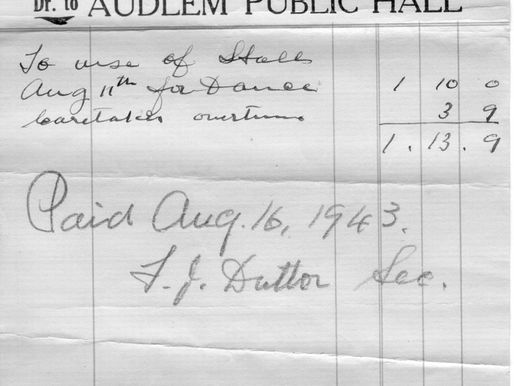 Dr. to AUDLEM PUBLIC HALL
To use of Hall
Aug 11th for Dance 1 10 0
Caretaker overtime 3 9
1 . 13 . 9
Paid Aug. 16, 1943.
F. J. Dutton Sec.